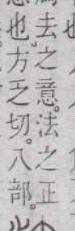 去之意法之正
也。方之切。八部。